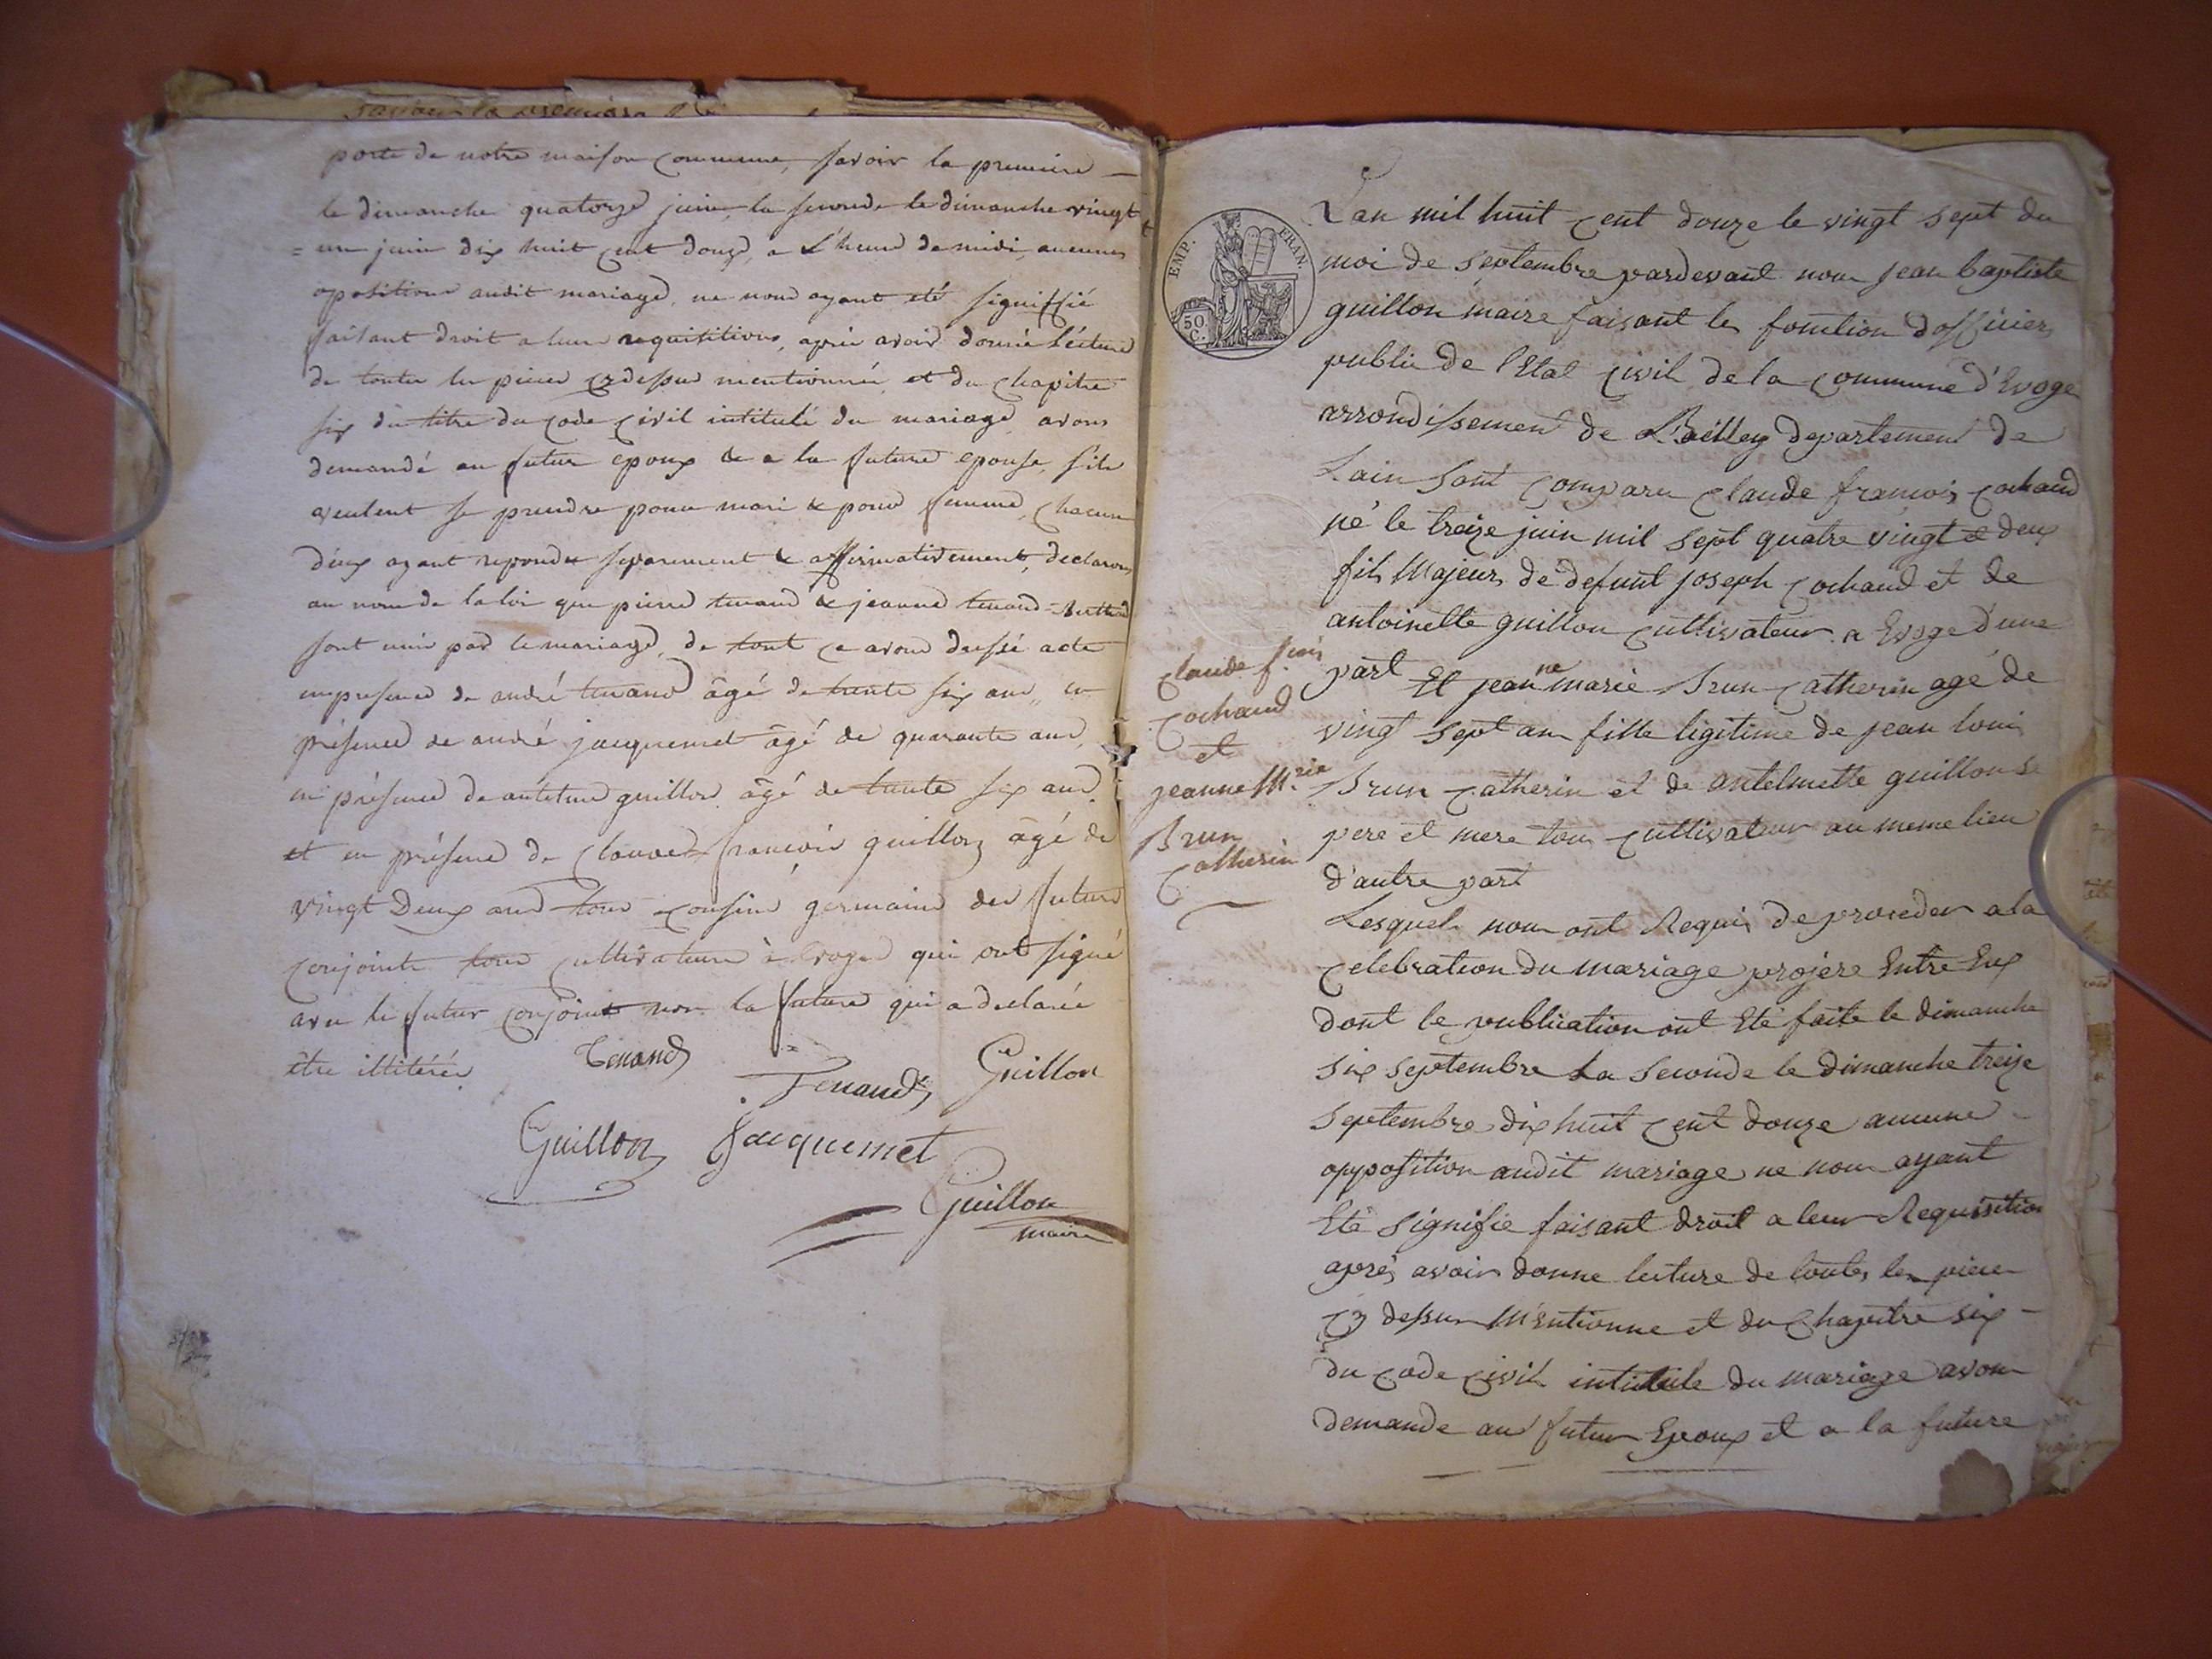 porte de notre maison commune, savoir la premiere
le dimanche quatorze juin, la seconde le dimanche vingt
= un juin dix huit cent douze, a L'heure de midi, aucunes
opositions audit mariage, ne nous ayant eté signiffié
faisant droit a leur requisitions, aprés avoir donné Lécture
de toutes les pieces cy dessus mentionnée et du chapitre
six du titre du code civil intitulé du mariage, avons
demandé au futur epoux & a la future epouse, s'ils
veulent se prendre pour mari & pour femme, chacun
d'eux ayant repondu separement & affirmativement, declarons
au nom de la loi que pierre tenand & jeanne tenand =
sont unis par le mariage, de tout ce avons dressé acte
en presence de andré tenand âgé de trente six ans, en
présence de andré jacquemet âgé de quarante ans,
en présence de antelme guillon âgé de trente six ans
et en présence de claude françois guillon âgé de
vingt Deux ans tous cousins germains des futurs
conjoints tous cultivateurs à Evoges qui ont signé
avec le futur conjoint non la future qui a declarée
être illitérée
Tenand
Tenand
Guillon
Guillon
Jacquemet
Guillon
maire
EMP. FRAN.
50 C.
Lan mil huit cent douze le vingt sept du
moi de septembre pardevant nous jean baptiste
guillon maire faisant les fonction dofficier
public de l'Etat civil de la commune d'Evoge
arrondissement de Bèlley departement de
Lain Sont comparu claude francois cochand
né le treize juin mil sept quatre vingt et deux
fils Majeur de defunt joseph cochand et de
antoinette guillon cultivateur a Evoge d'une
part Et jeanne marie Brun catherin agé de
vingt sept an fille ligitime de jean louis
Brun catherin et de antelmette guillon se
pere et mere tous cultivateur au meme lieu
d'autre part
Claude f.cois
cochand
et
jeanne M.rie
Brun
catherin
Lesquels nous ont Requis de proceder a la
celebration du mariage projere Entre Eux
dont le publication ont Eté faite le dimanche
six septembre La seconde le dimanche treize
septembre dix huit cent douze aucune
opposition audit mariage ne nous ayant
Eté signifie faisant droit a leur Requisition
aprés avoir donne lecture de toutes les piece
cy dessus Mentionne et du chapitre six
du code civil intitule du mariage avons
demande au futur Epoux et a la future